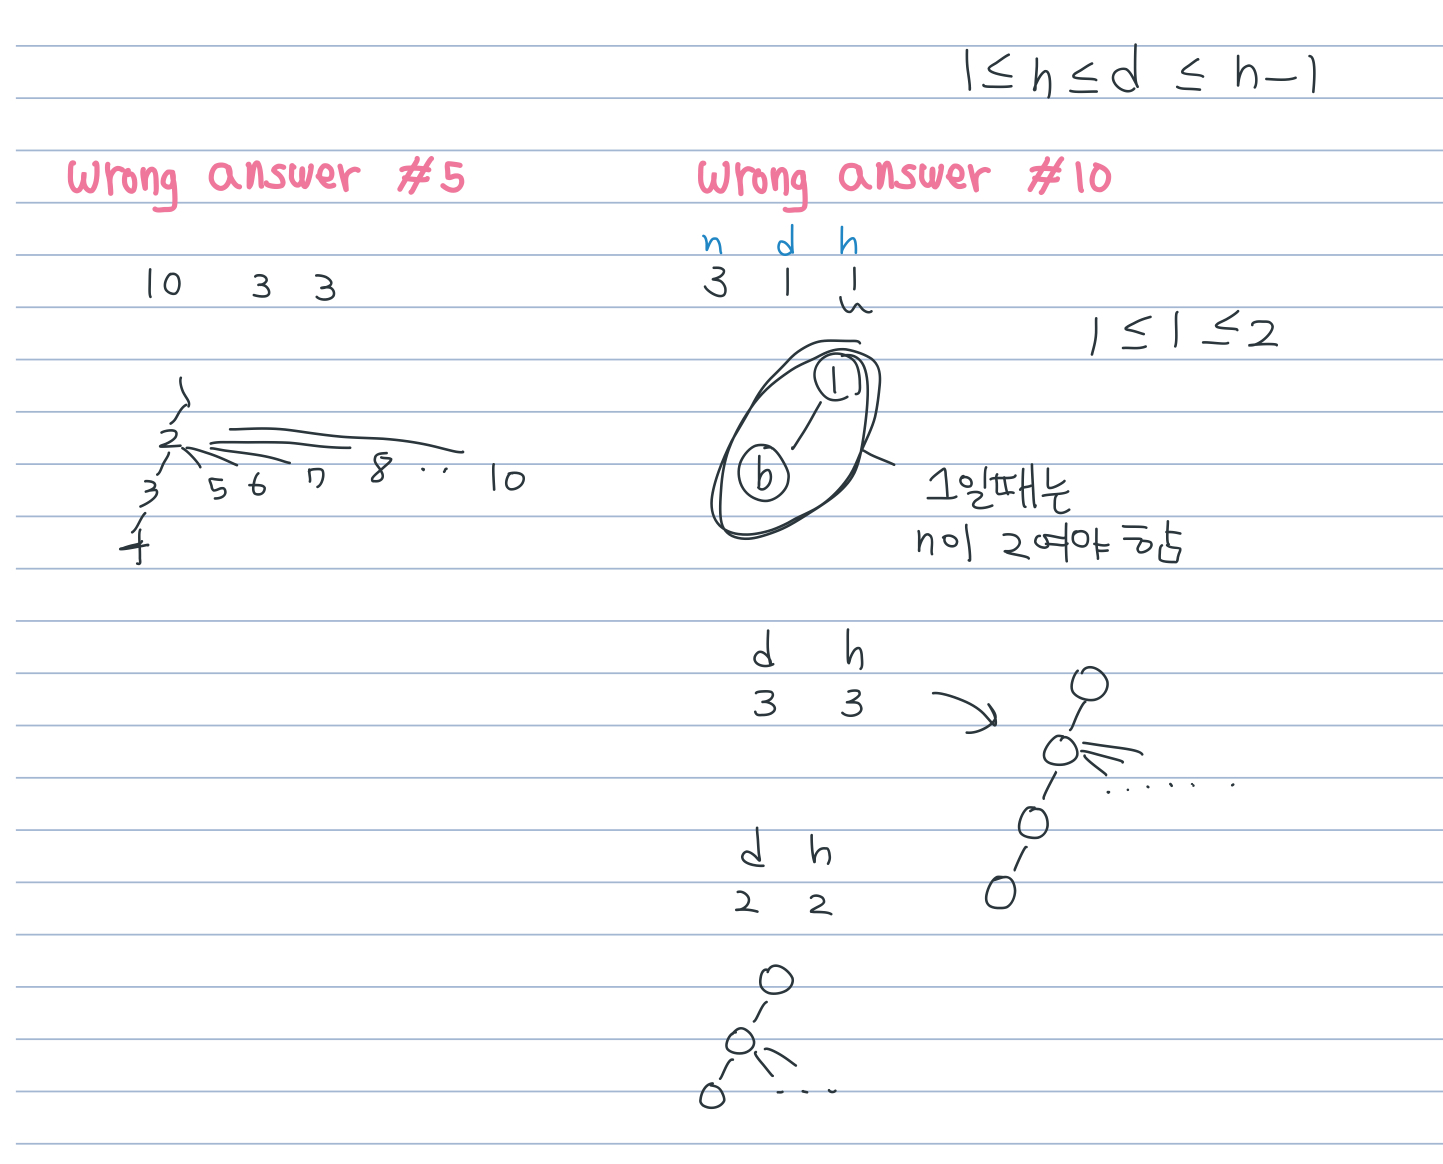 1 ≤ h ≤ d ≤ n-1
Wrong answer #5
10 3 3
1
2
3 5 6 7 8 .. 10
4
Wrong answer #10
n d h
3 1 1
1 ≤ 1 ≤ 2
1
b
1일때는
n이 2여야 함
d h
3 3
d h
2 2